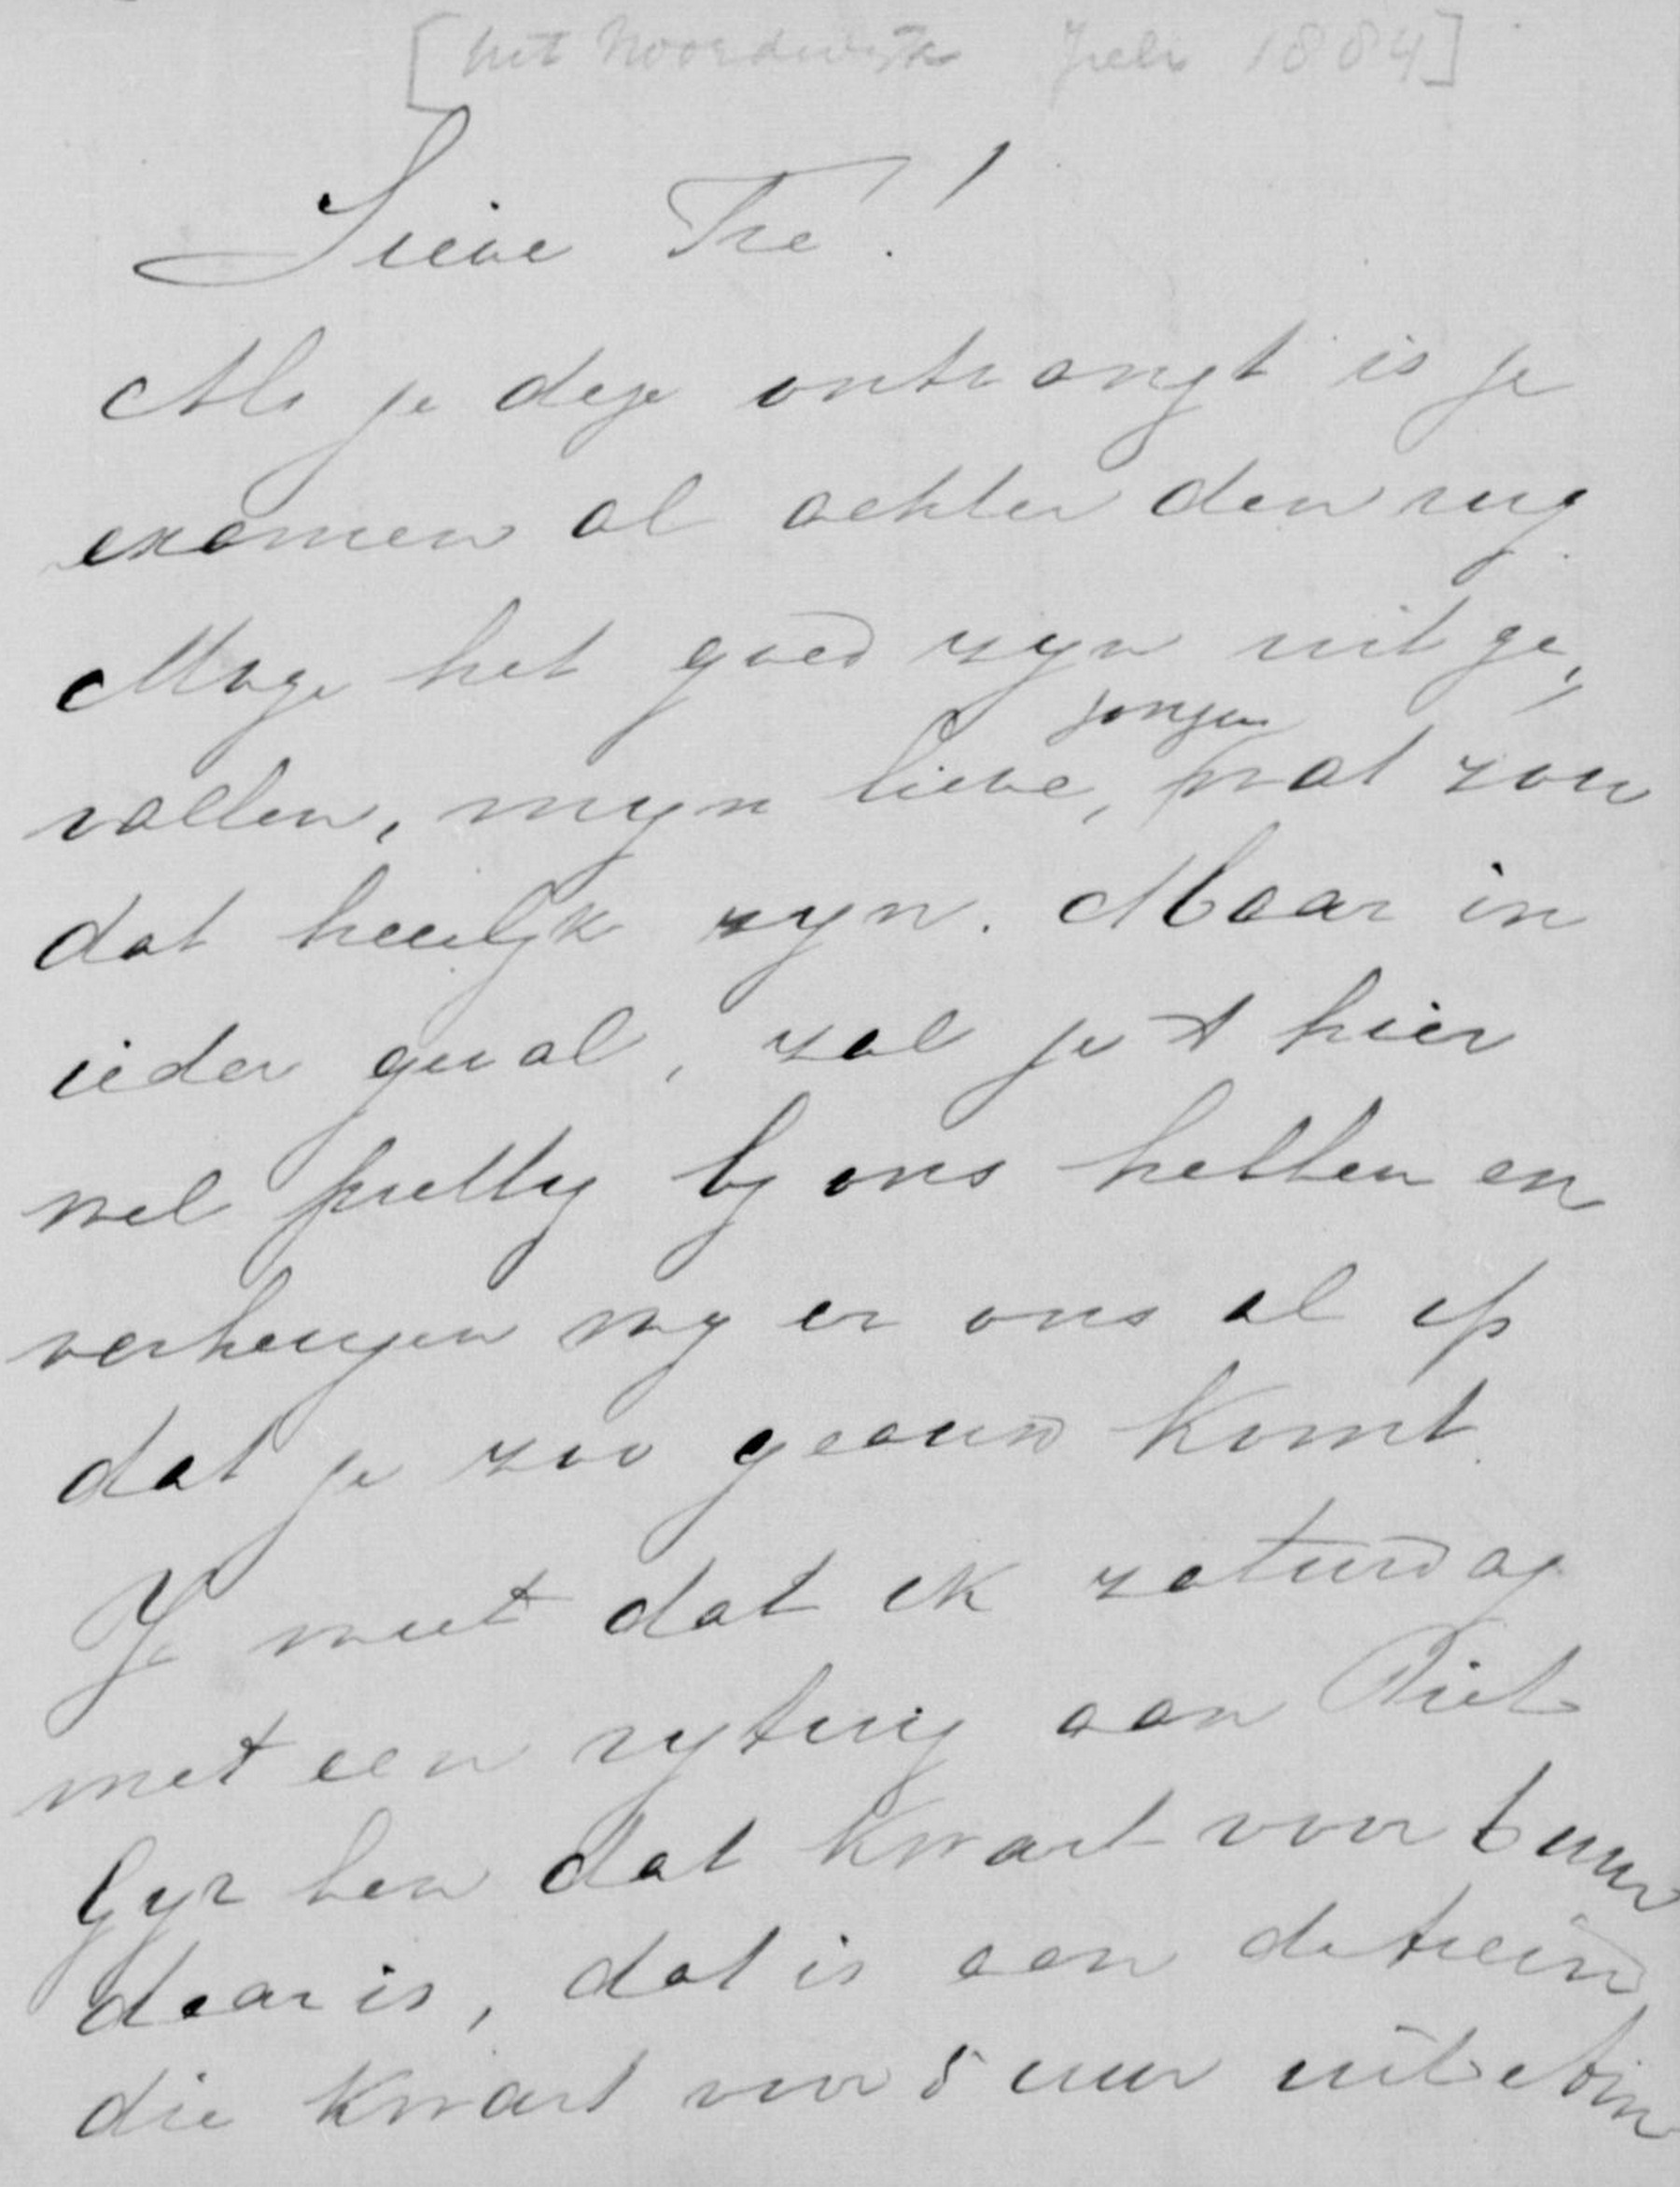 [uit Noordwijk Juli 1884]
Lieve Fré!
Als je deze ontvangt is je
examen al achter den rug.
Moge het goed zyn uit ge„
vallen, myn lieve, jongen wat zou
dat heerlyk zyn. Maar in
ieder geval, zal je 't hier
wel prettig by ons hebben en
verheugen wy er ons al op
dat je zoo gaauw komt.
Je weet dat ik zaturdag
met een rytuig aan Piet
Gyz ben dat kwart voor 6 uur
daar is, dat is aan de trein
die kwart voor 5 uur uit